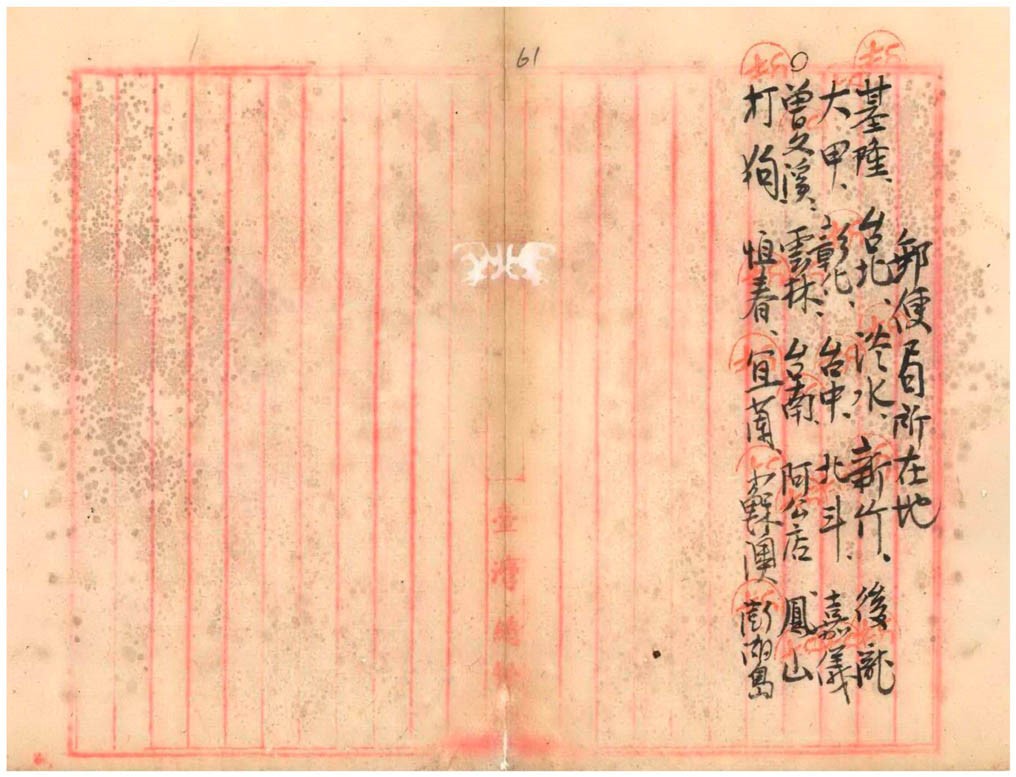 61
郵便局所在地
基隆、台北、淡水、新竹、後瓏
大甲、彰化、台中、北斗、嘉儀
○曽文溪、雲林、台南、阿公店 鳳山
打狗 恒春、宜蘭 蘇澳 澎湖島